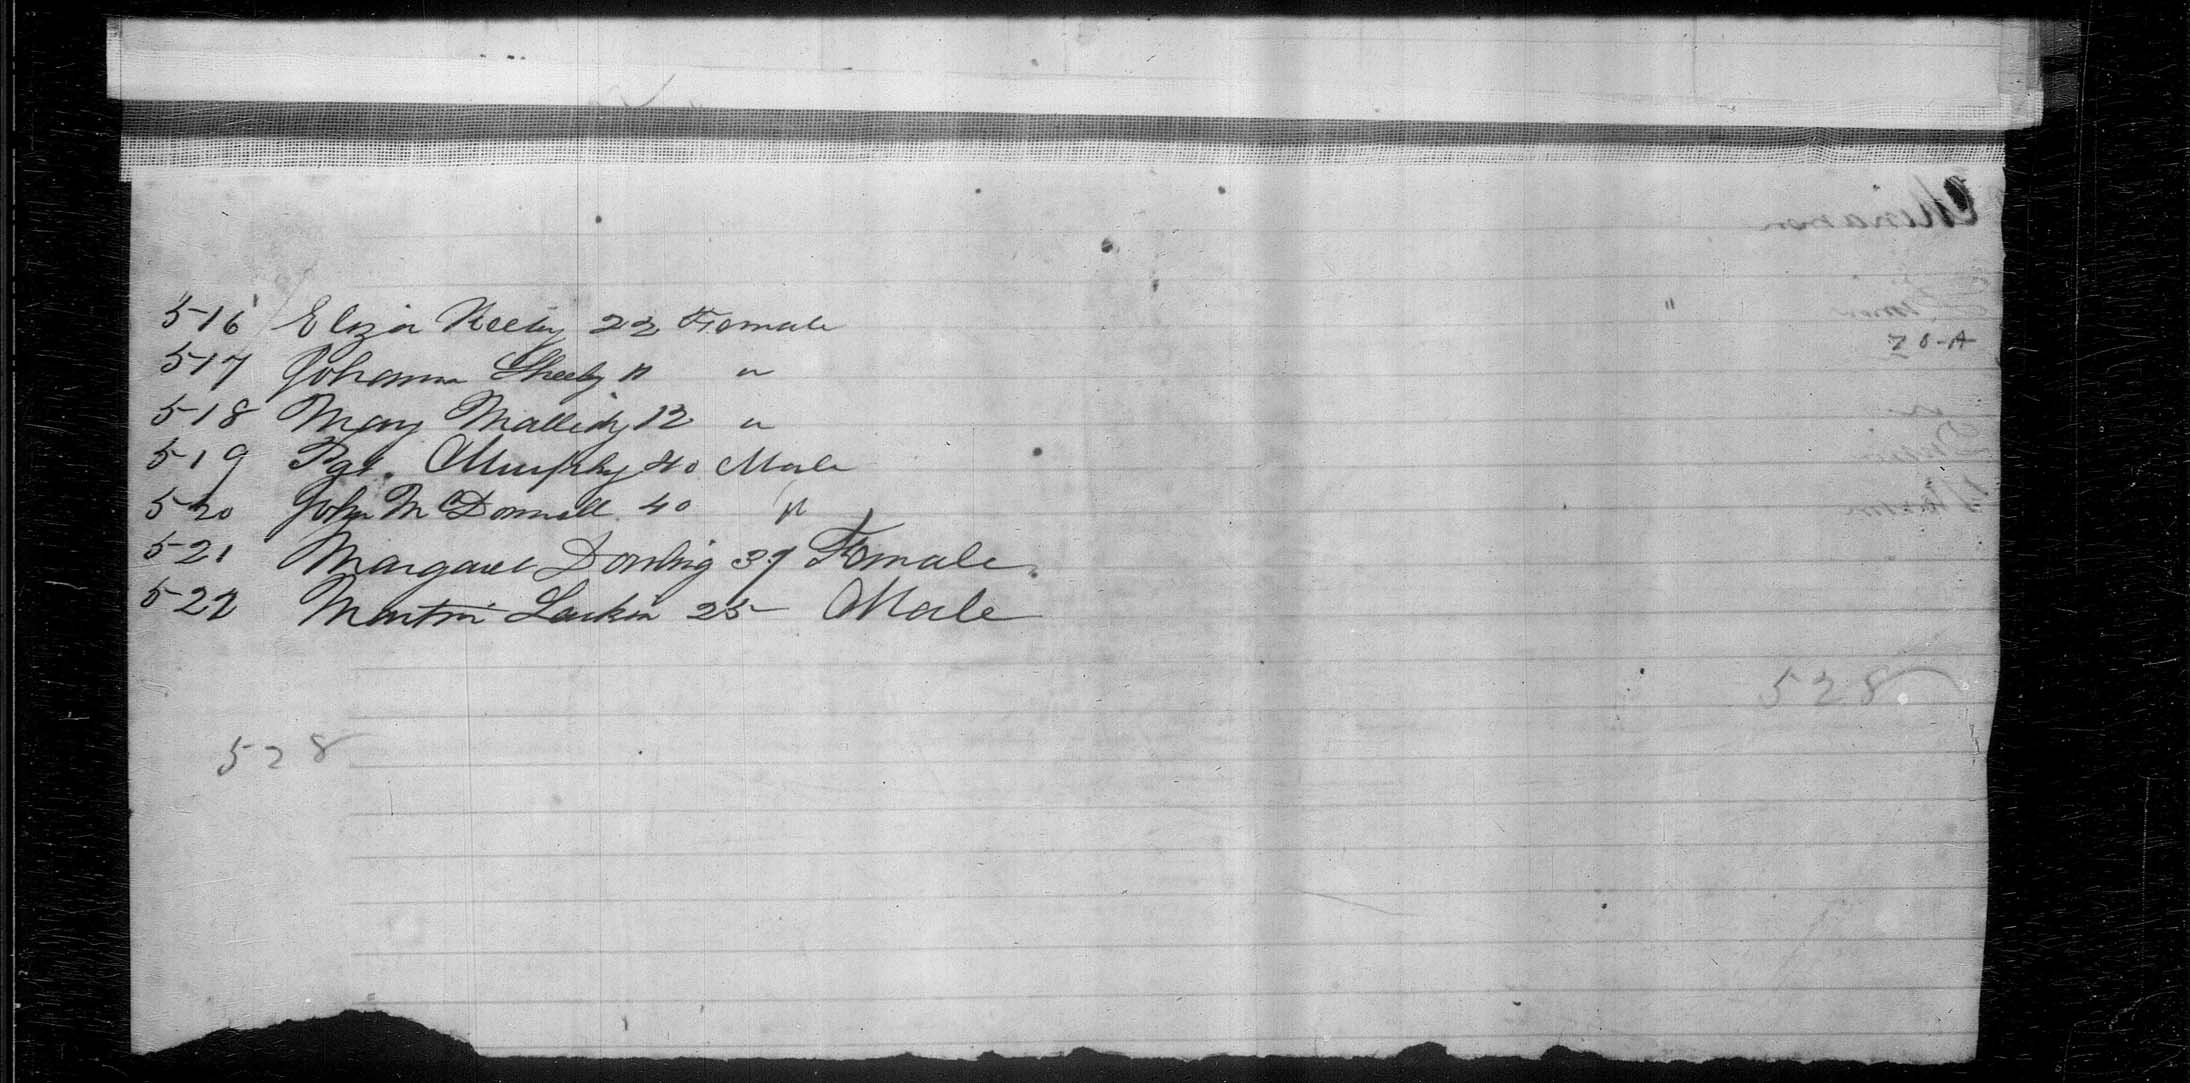 516 Eliza Keely 22 Female
517 Johanna Sheehy 11 "
518 Mary Mallidy 12 "
519 Pat. Murphy 40 Male
520 John McDonnell 40 "
521 Margaret Dowling 37 Female
522 Martin Larkin 25 Male
528
528